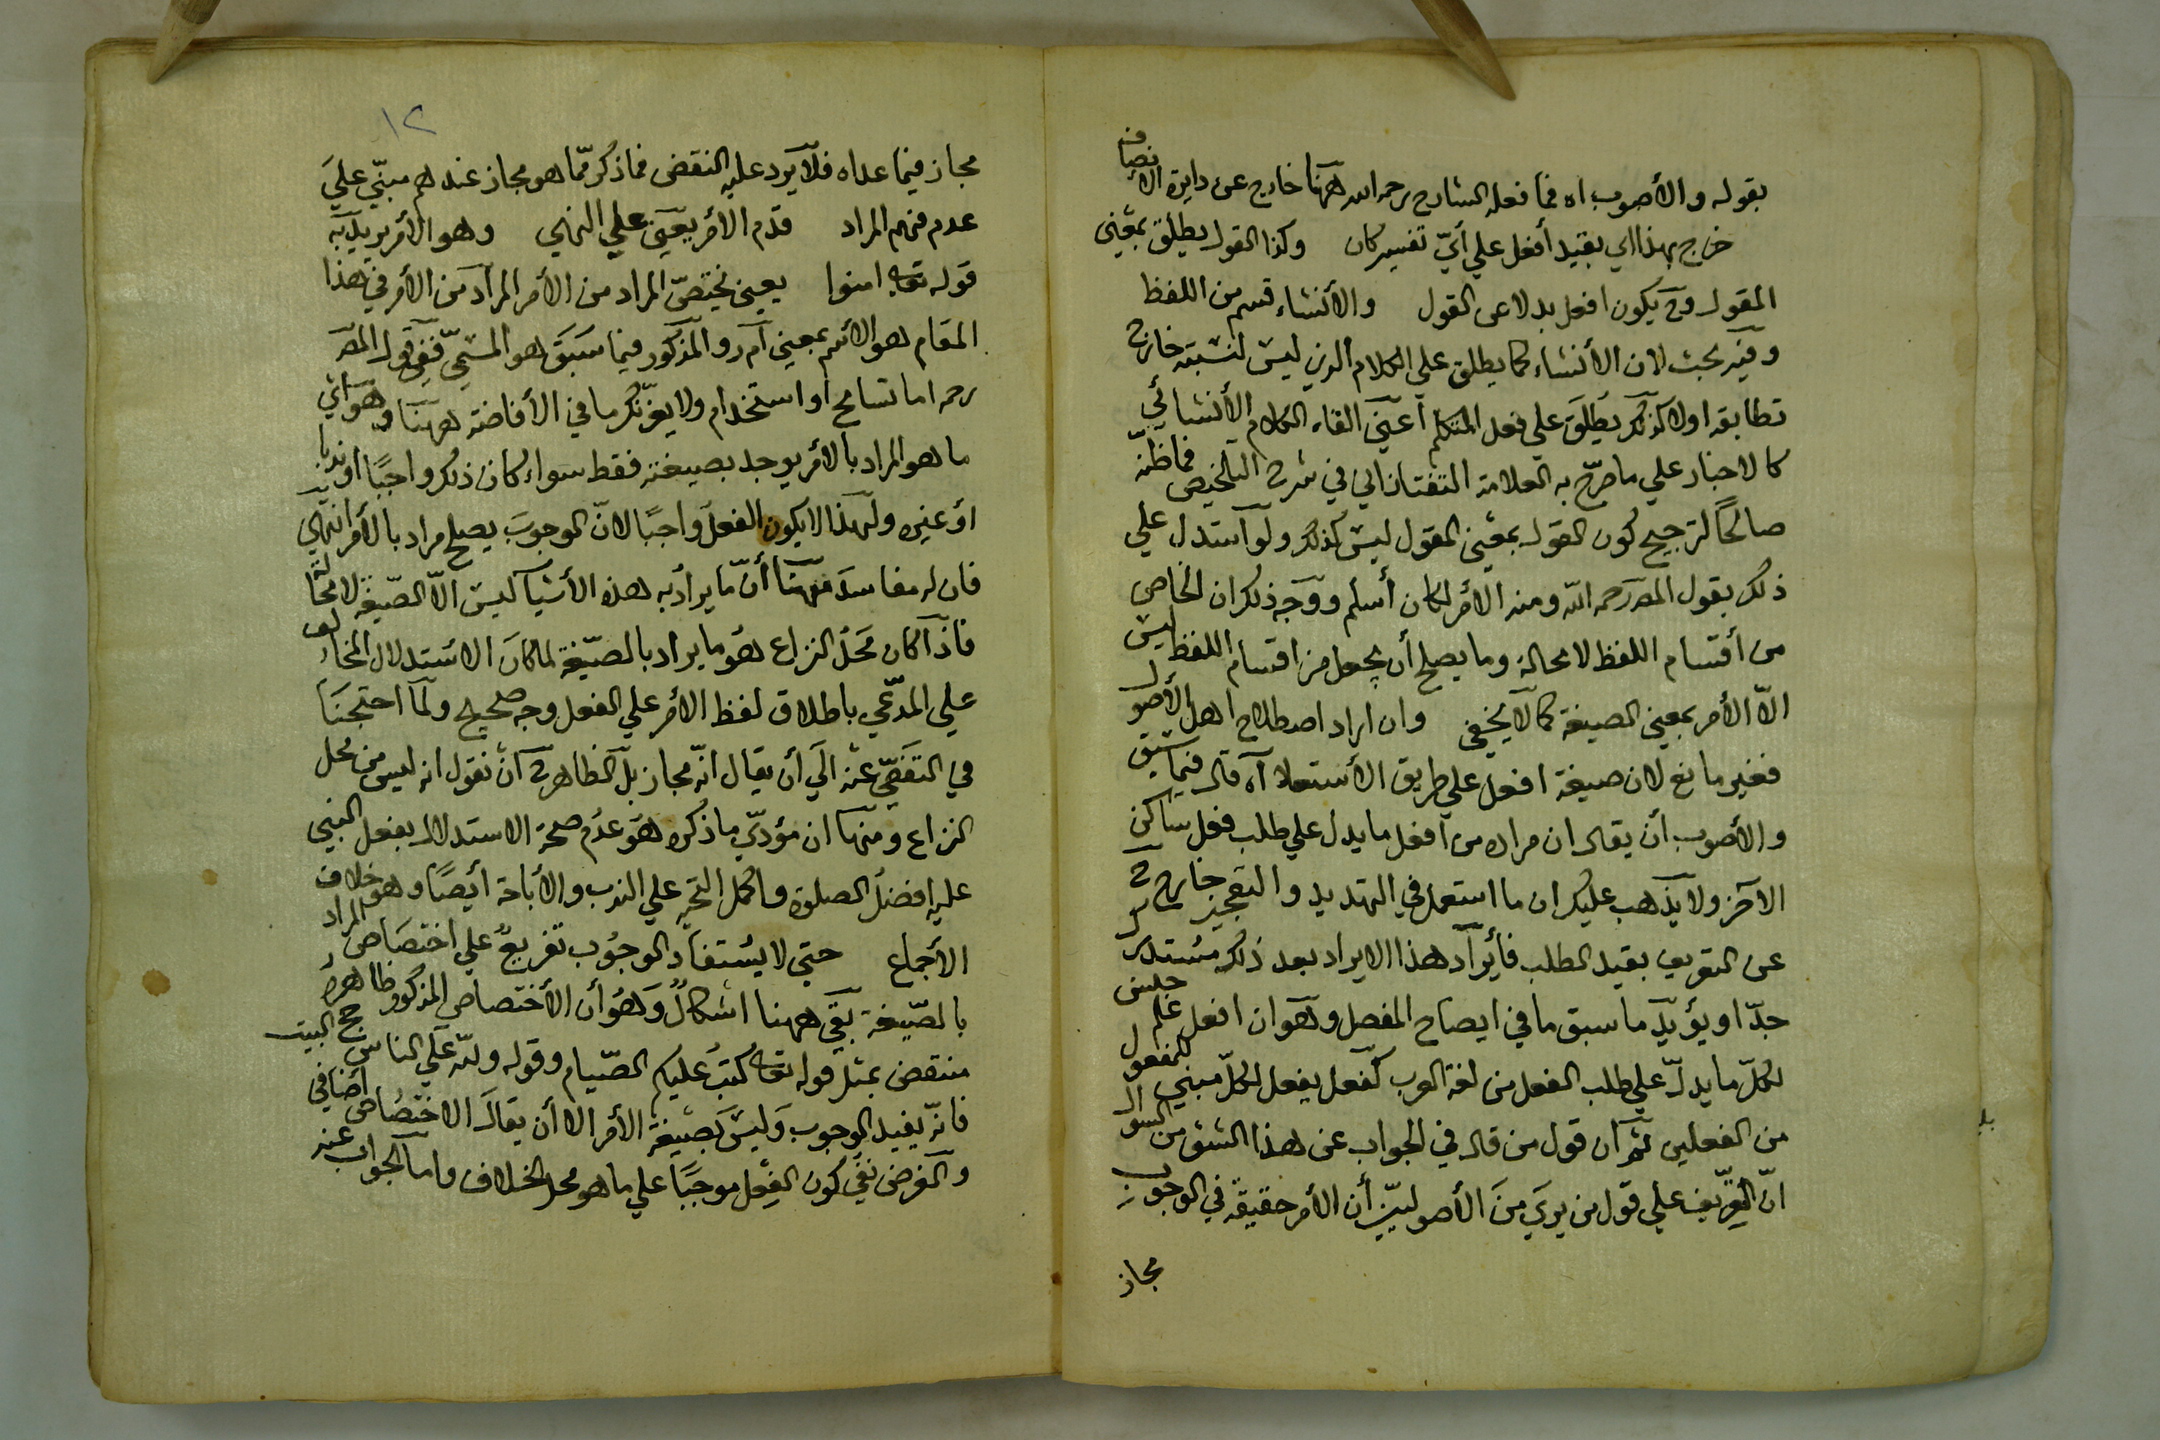 بقوله والأصوب اه فما فعله الشارح رحمه الله ههنا خارج عن دايرة الانصاف
خرج بهذا اي بقيد أفعل علي أيّ تفسير كان وكذا القول يطلق بمعني
المقول وح يكون افعل بدلا عن القول والأنشاء قسم من اللفظ
وفيه بحث لان الأنشاء كما يطلق علي الكلام الذي ليس لنسبته خارج
تطابقه اولا كذلك يطلق علي فعل المتكلم أعني القاء الكلام الأنشائي
كالاخبار علي ما صرّح به العلامة التفتازاني في شرح التلخيص فما ظنّه
صالحًا لترجيح كون القول بمعني المقول ليس كذلك ولو استدل علي
ذلك بقول المصـ رحمه اللّه ومنه الأمر لكان أسلم ووجه ذلك ان الخاص
من أقسام اللفظ لا محالة وما يصلح أن يجعل من اقسام اللفظ ليس
الاّ الأمر بمعني الصيغة كما لا يخفي وان اراد اصطلاح اهل الأصول
فغير مانع لان صيغة افعل علي طريق الأستعلاء آه قال فيما سبق
والأصوب أن يقال ان مراده من افعل ما يدل علي طلب فعل ساكن
الآخر ولا يذهب عليك ان ما استعمل في التهديد والتعجيز خارج ح
عن التعريف بقيد الطلب فأيراد هذا الايراد بعد ذلك مستدرك
جدّا ويؤيّد ما سبق ما في ايضاح المفصل وهو ان افعل علم جنس
لكلّ ما يدلّ علي طلب الفعل من لغة العرب كفعل يفعل لكلّ مبني للمفعول
من الفعلين ثم ان قول من قال في الجواب عن هذا الشق من السوال
انّ التعريف علي قول من يري من الأصوليين أن الأمر حقيقة في الوجوب
مجاز
١٢
مجاز فيما عداه فلا يرد عليه النقض فما ذكر ممّا هو مجاز عندهم مبنّي علي
عدم فهم المراد قدّم الأمر يعني علي النهي وهو الأمر يريد به
قوله تعالي امنوا يعني يختصّ المراد من الأمر المراد من الأمر في هذا
المقام هو الاسم بمعني آمر والمذكور فيما سبق هو المسمّي ففي قول المصـ
رحمه اما تسامح او استخدام ولا يغرّنك ما في الأفاضة ههنا وهو اي
ما هو المراد بالأمر يوجد بصيغة فقط سواء كان ذلك واجبًا او ندبا
او غيره ولهذا لا يكون الفعل واجبًا لانّ الوجوب يصلح مراد بالأمر انتهي
فان له مفاسد منها أنّ ما يراد به هذه الأشيا ليس الاّ الصّيغة لا محالة
فاذا كان محلّ النزاع هو ما يراد بالصّيغة لما كان الاستدلال المخالف
علي المدّعي باطلاق لفظ الأمر علي الفعل وجه صحيح ولما احتجنا
في التفصّي عنه الي أن يقال انّه مجاز بل الظاهر ح ان نقول انه ليس من محل
النزاع ومنها ان مؤدّي ما ذكره هو عدم صحة الاستدلال بفعل النبي
عليه افضل الصلوة واكمل التحية علي الندب والأباحة أيضًا وهو خلاف
الأجماع حتي لا يستفاد الوجوب تفريع علي اختصاص المراد
بالصّيغة بقي ههنا اشكالٌ وهو أن الأختصاص المذكور ظاهره
منتقض بمثل قوله تعالي كتب عليكم الصّيام وقوله وللّه علي الناس حج البيت
فانّه يفيد الوجوب وليس بصيغة الأمر الا أن يقال الاختصاص أضافي
والغرض نفي كون الفعل موجبًا علي ما هو محل الخلاف واما الجواب عنه